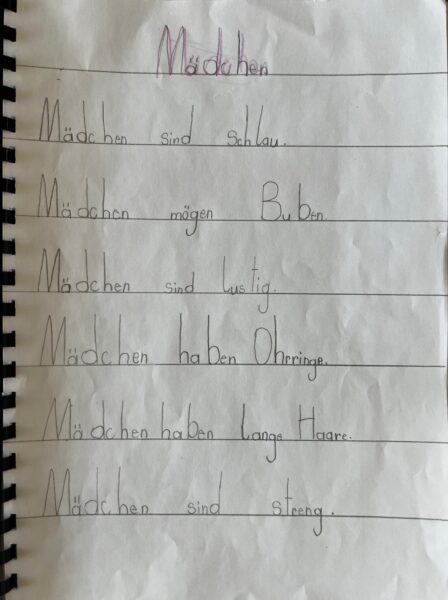 Mädchen
Mädchen sind schlau.
Mädchen mögen Buben.
Mädchen sind lustig.
Mädchen haben Ohrringe.
Mädchen haben lange Haare.
Mädchen sind streng.